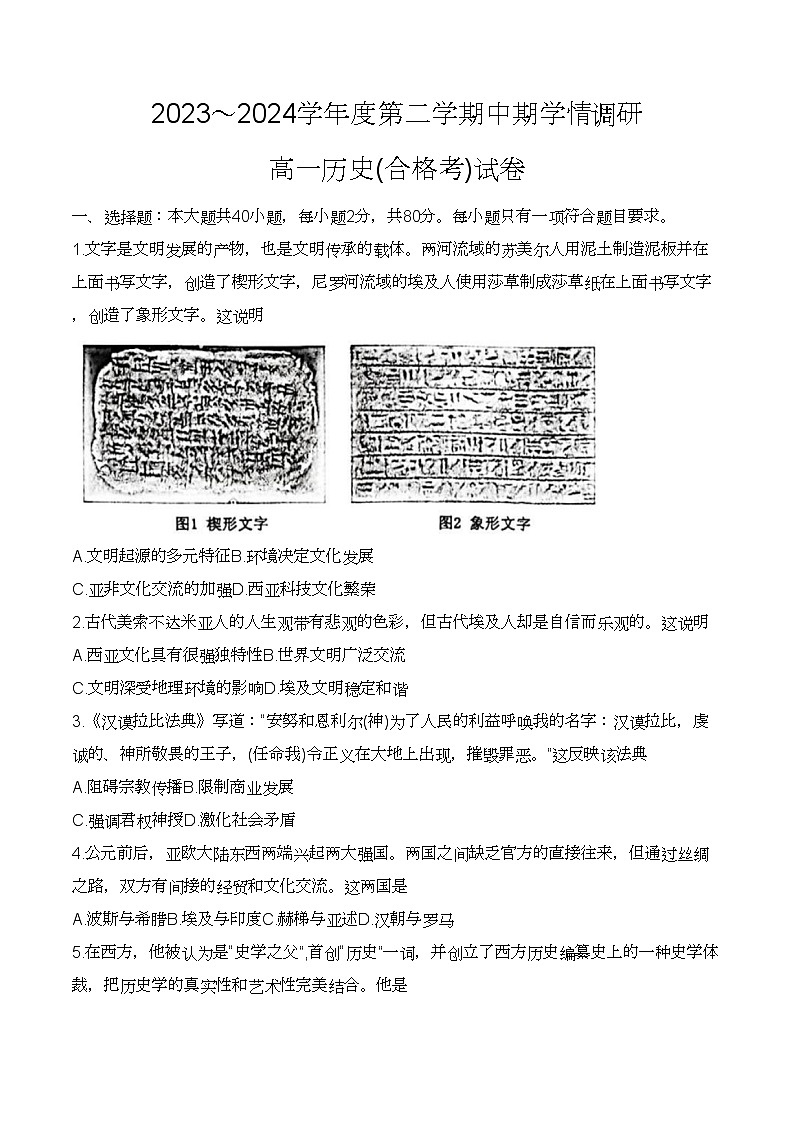 2023～2024学年度第二学期中期学情调研
高一历史(合格考)试卷
一、选择题：本大题共40小题，每小题2分，共80分。每小题只有一项符合题目要求。
1.文字是文明发展的产物，也是文明传承的载体。两河流域的苏美尔人用泥土制造泥板并在
上面书写文字，创造了楔形文字，尼罗河流域的埃及人使用莎草制成莎草纸在上面书写文字
，创造了象形文字。这说明
图1 楔形文字
图2 象形文字
A.文明起源的多元特征B.环境决定文化发展
C.亚非文化交流的加强D.西亚科技文化繁荣
2.古代美索不达米亚人的人生观带有悲观的色彩，但古代埃及人却是自信而乐观的。这说明
A.西亚文化具有很强独特性B.世界文明广泛交流
C.文明深受地理环境的影响D.埃及文明稳定和谐
3.《汉谟拉比法典》写道："安努和恩利尔(神)为了人民的利益呼唤我的名字：汉谟拉比，虔
诚的、神所敬畏的王子，(任命我)令正义在大地上出现，摧毁罪恶。"这反映该法典
A.阻碍宗教传播B.限制商业发展
C.强调君权神授D.激化社会矛盾
4.公元前后，亚欧大陆东西两端兴起两大强国。两国之间缺乏官方的直接往来，但通过丝绸
之路，双方有间接的经贸和文化交流。这两国是
A.波斯与希腊B.埃及与印度C.赫梯与亚述D.汉朝与罗马
5.在西方，他被认为是"史学之父",首创"历史"一词，并创立了西方历史编纂史上的一种史学体
裁，把历史学的真实性和艺术性完美结合。他是